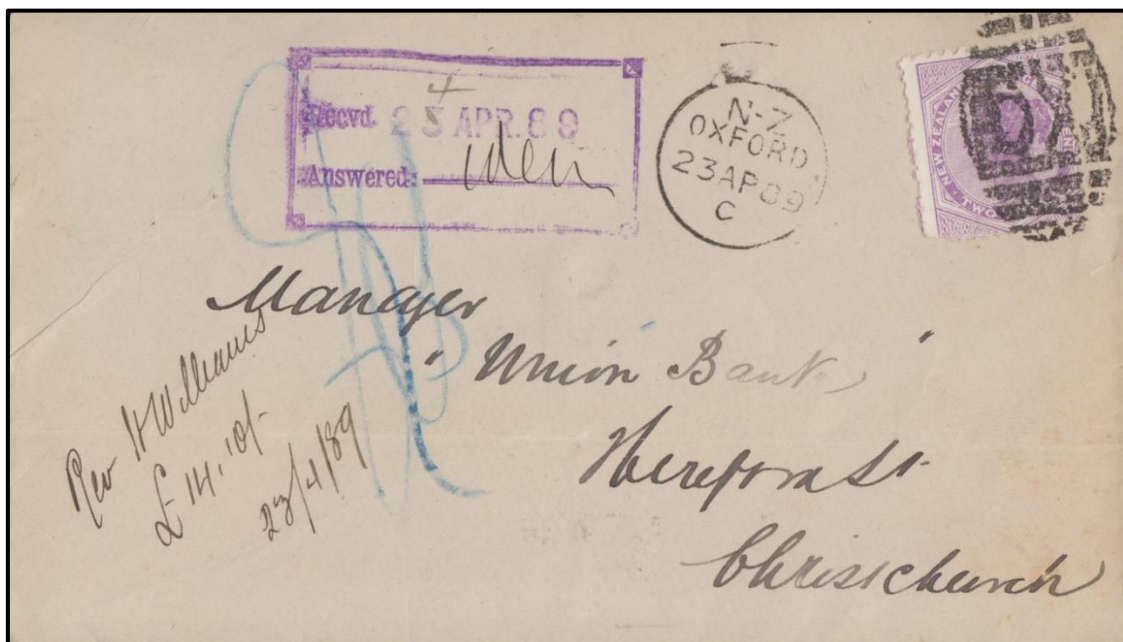 4
Recvd. 23 APR. 89
Answered: idem
N-Z
OXFORD
23 AP 89
C
NEW ZEALAND
TWO
Manager
"Union Bank"
Hereford St
Christchurch
Rev H Williams
£14.10/-
23/4/89